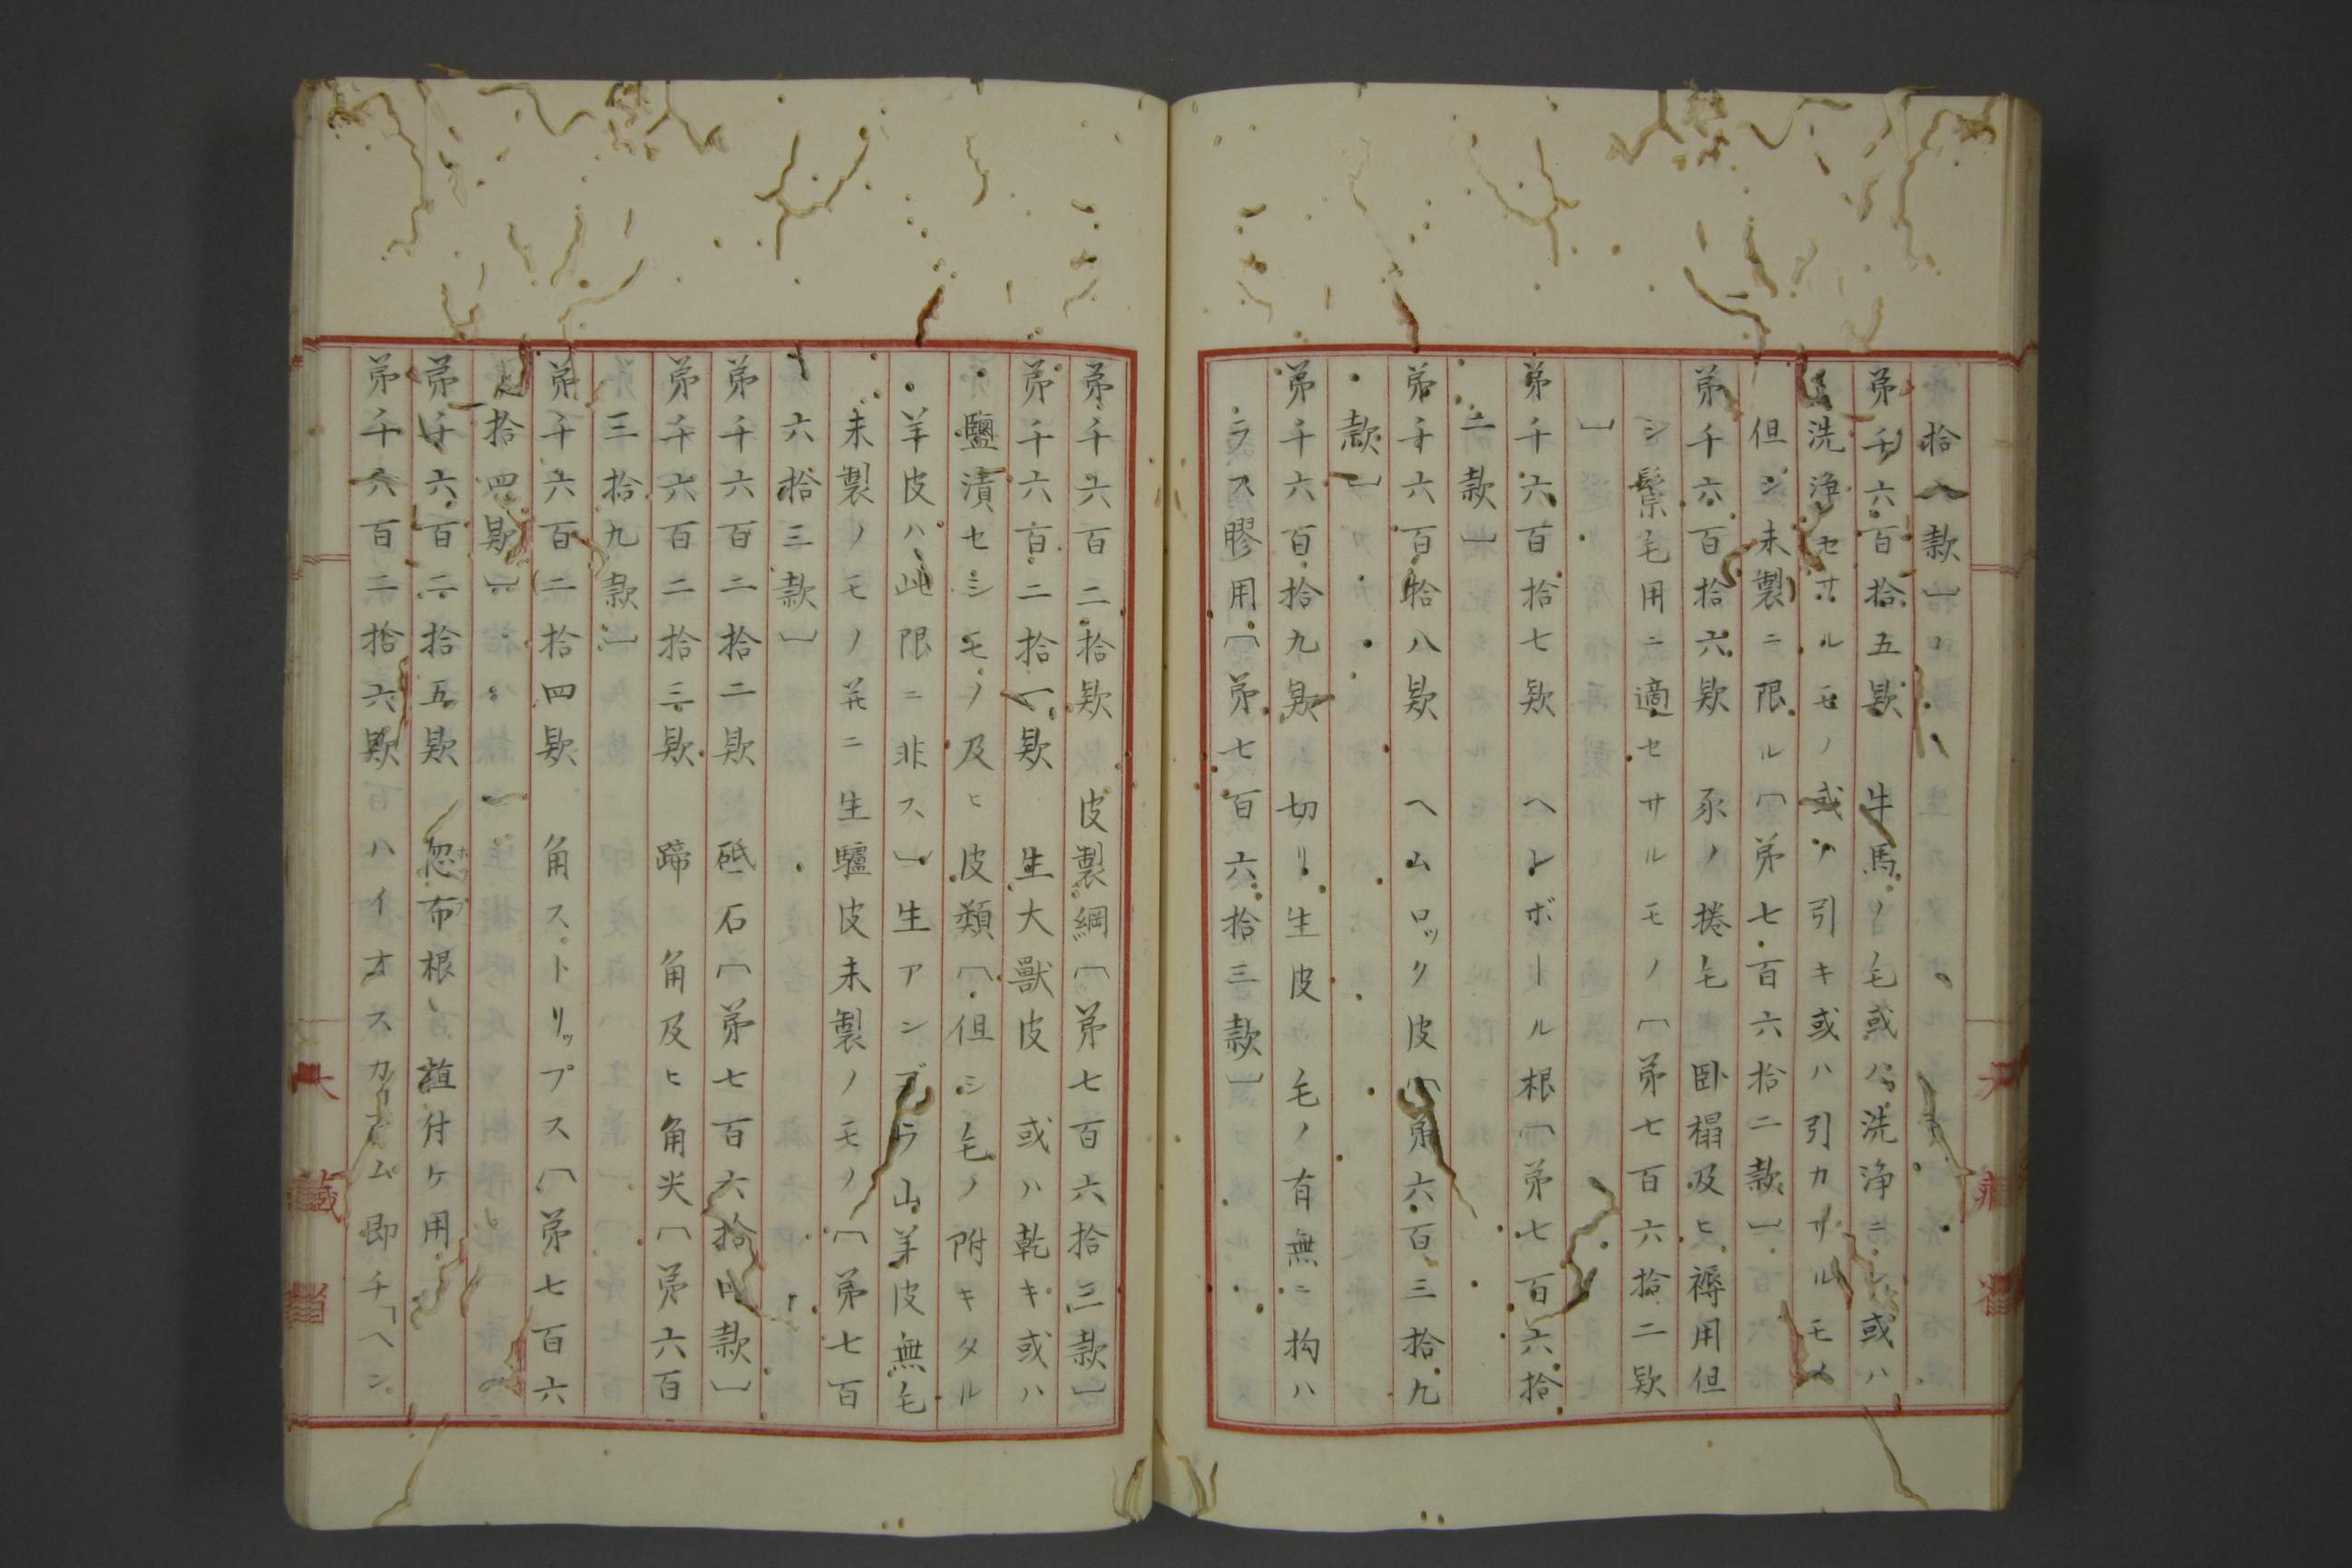 拾八款〕
第千六百拾五欵　牛馬ノ毛或ハ洗浄ニシ或ハ
洗浄セサルモノ或ハ引キ或ハ引カサルモノ
但シ未製ニ限ル〔第七百六拾二款〕
第千六百拾六欵　豕ノ捲毛　臥榻及ヒ褥用但
シ鬃毛用ニ適セサルモノ〔第七百六拾二欵
〕
第千六百拾七欵　ヘレボール根〔第七百六拾
二款〕
第千六百拾八欵　ヘムロック皮〔第六百三拾九
款〕
第千六百拾九欵　切リ生皮　毛ノ有無ニ拘ハ
ラス膠用〔第七百六拾三款〕
第千六百二拾欵　皮製綱〔第七百六拾三款〕
第千六百二拾一欵　生大獸皮　或ハ乾キ或ハ
鹽漬セシモノ及ヒ皮類〔但シ毛ノ附キタル
羊皮ハ此限ニ非ス〕生アンゴラ山羊皮無毛
未製ノモノ并ニ生驢皮未製ノモノ〔第七百
六拾三款〕
第千六百二拾二欵　砥石〔第七百六拾四款〕
第千六百二拾三欵　蹄　角及ヒ角尖〔第六百
三拾九款〕
第千六百二拾四欵　角ストリップス〔第七百六
拾四欵〕
第千六百二拾五欵　忽布根　植付ケ用
第千六百二拾六欵　ハイオスカアム即チ「ヘン